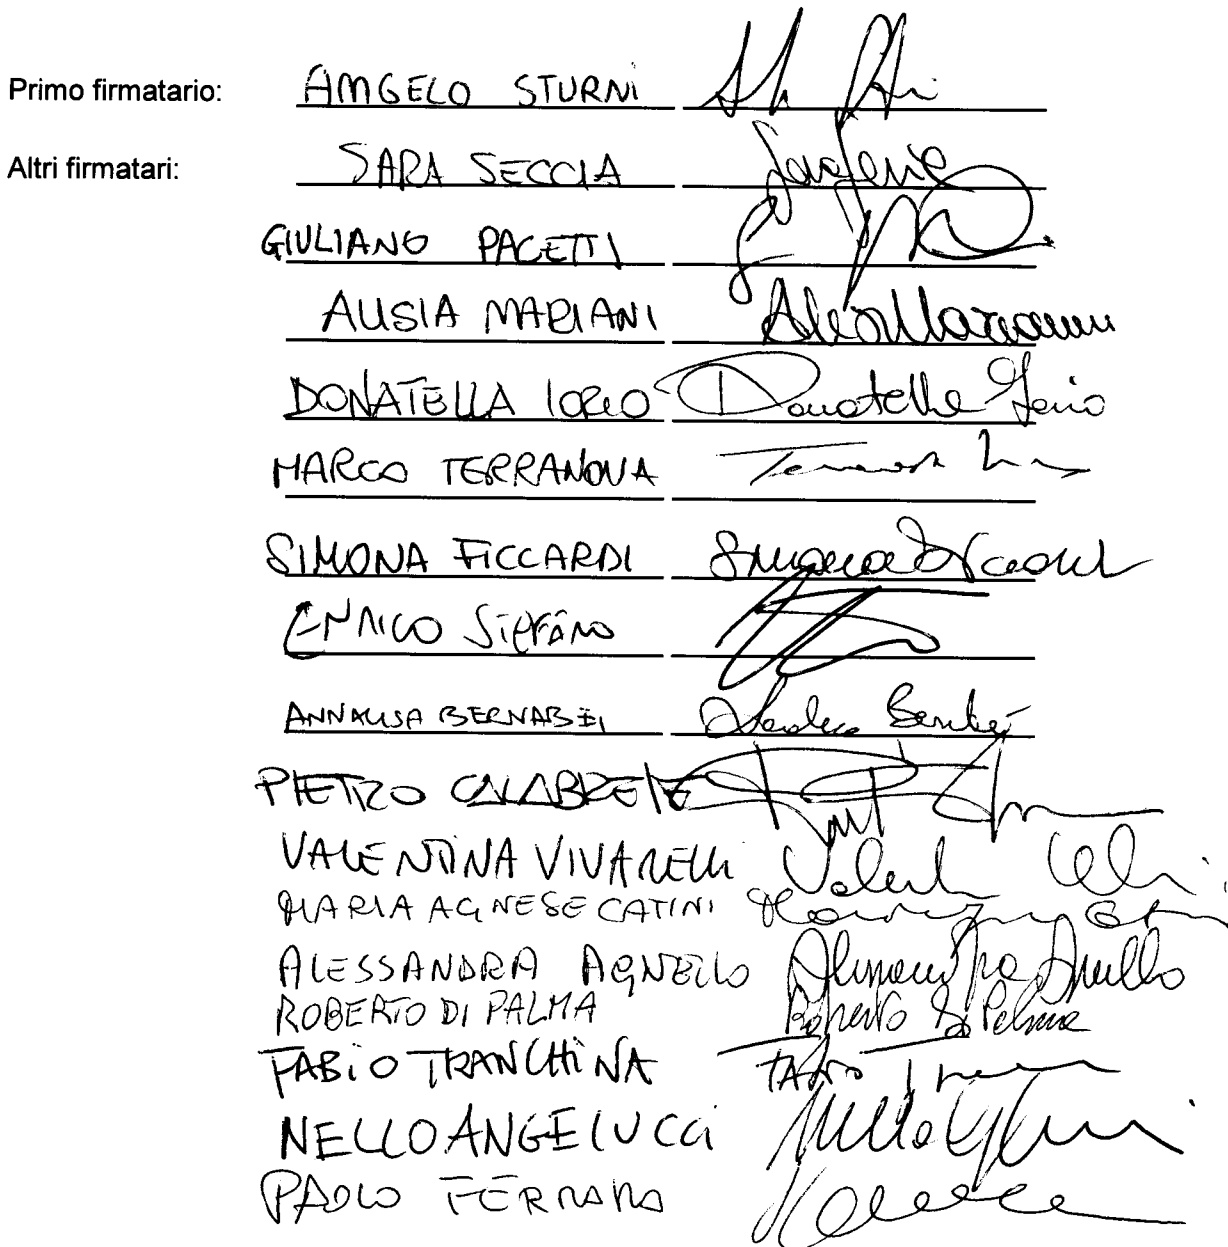 Primo firmatario: ANGELO STURNI
Altri firmatari: SARA SECCIA
GIULIANO PACETTI
ALISIA MARIANI
DONATELLA IORIO Donatella Iorio
MARCO TERRANOVA
SIMONA FICCARDI Simona Ficcardi
ENRICO STEFÀNO
ANNALISA BERNABEI
PIETRO CALABRESE
VALENTINA VIVARELLI
MARIA AGNESE CATINI
ALESSANDRA AGNELLO Alessandra Agnello
ROBERTO DI PALMA Roberto Di Palma
FABIO TRANCHINA FABIO
NELLO ANGELUCCI
PAOLO FERRARA